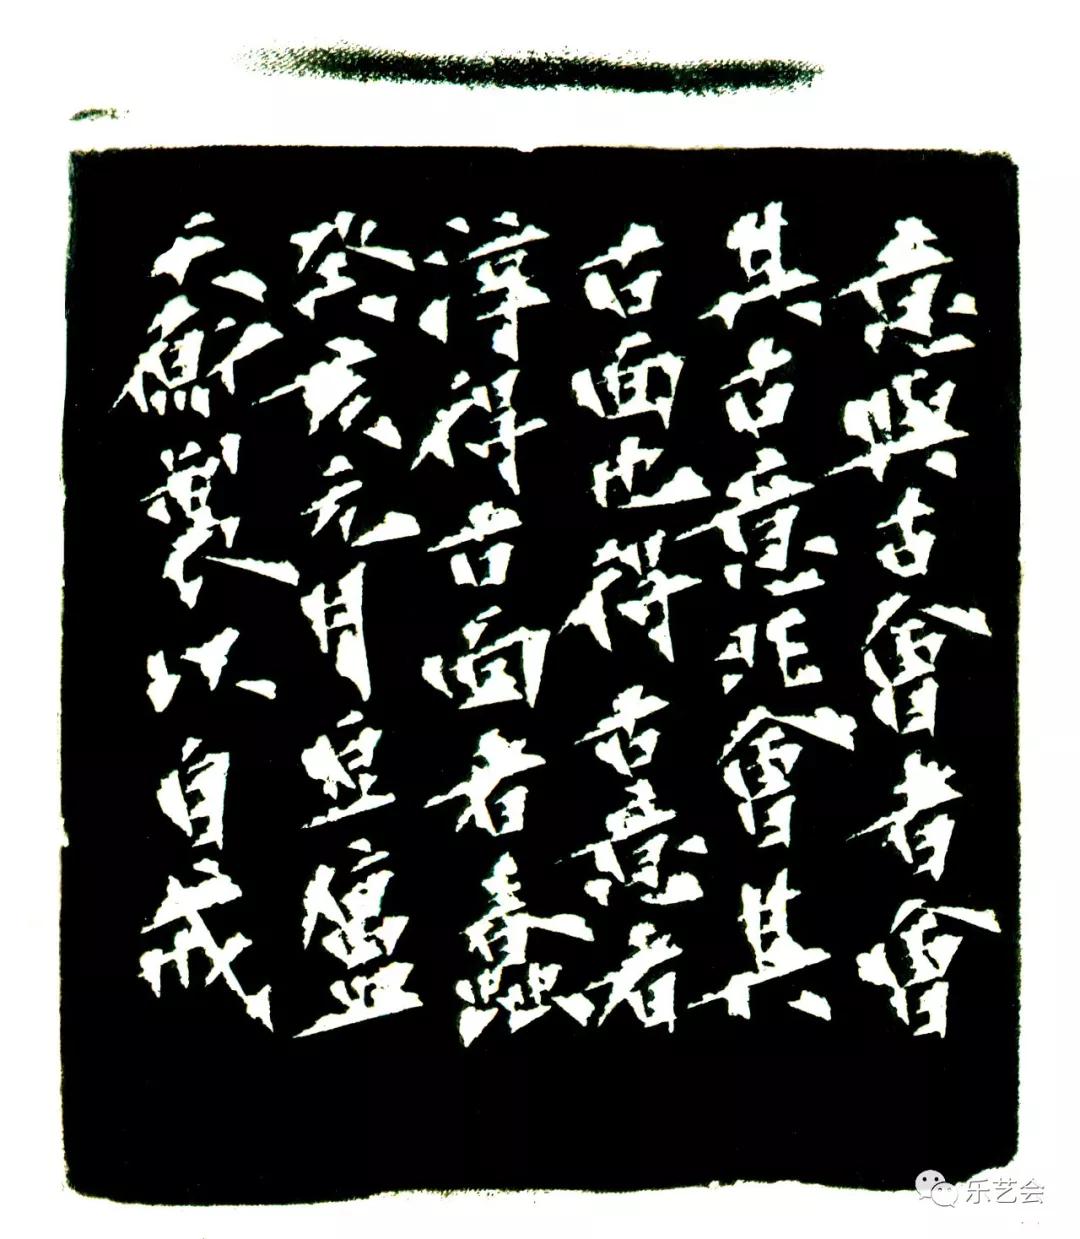 意與古會者會
其古意非會其
古面也得古意者
淳得古面者蠢
癸亥元月
天衡製以自戒
乐艺会